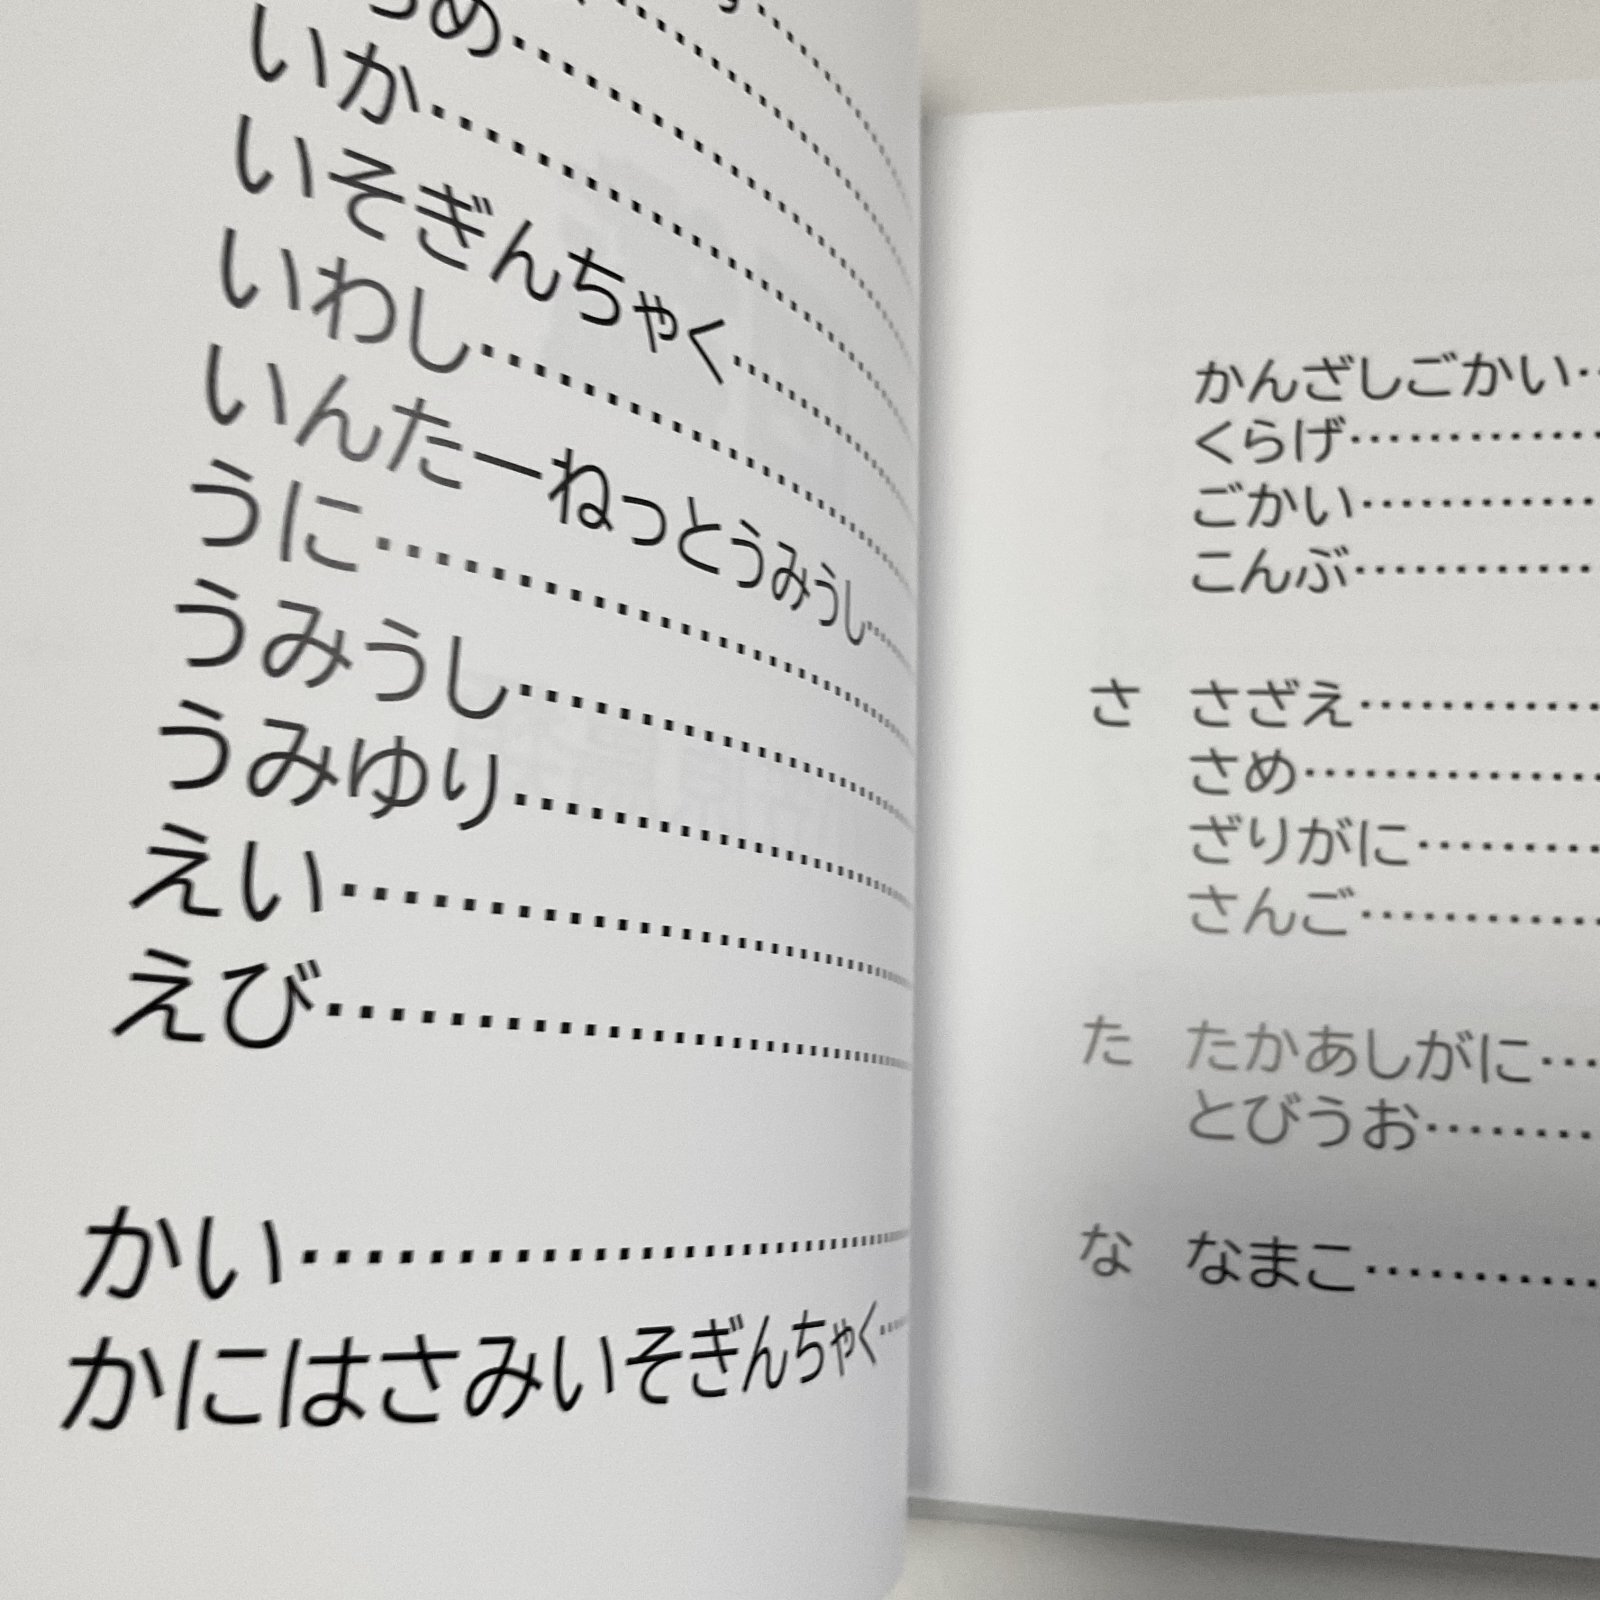 いか
いそぎんちゃく
いわし
いんたーねっとうみうし
うに
うみうし
うみゆり
えい
えび
かい
かにはさみいそぎんちゃく
かんざしごかい
くらげ
ごかい
こんぶ
さ さざえ
さめ
ざりがに
さんご
た たかあしがに
とびうお
な なまこ